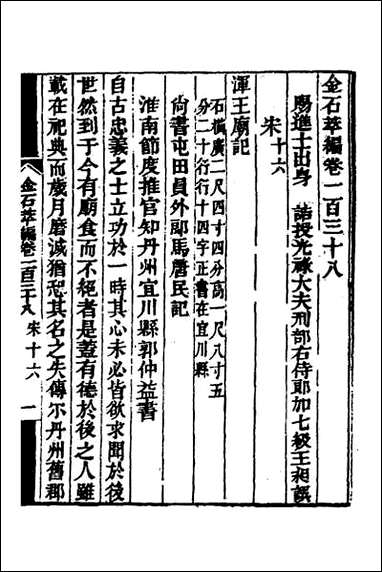 金石萃編卷一百三十八
賜進士出身 誥授光祿大夫刑部右侍郎加七級王昶譔
宋十六
渾王廟記
石橫廣二尺四寸四分高一尺八寸五
分二十行行十四字正書在宜川縣
尙書屯田員外郎馬唐民記
淮南節度推官知丹州宜川縣郭仲益書
自古忠義之士立功於一時其心未必皆欲求聞於後
世然到于今有廟食而不絕者是蓋有德於後之人雖
載在祀典而歲月磨滅猶恐其名之失傳尒丹州舊郡
金石萃編卷一百三十八 宋十六 一